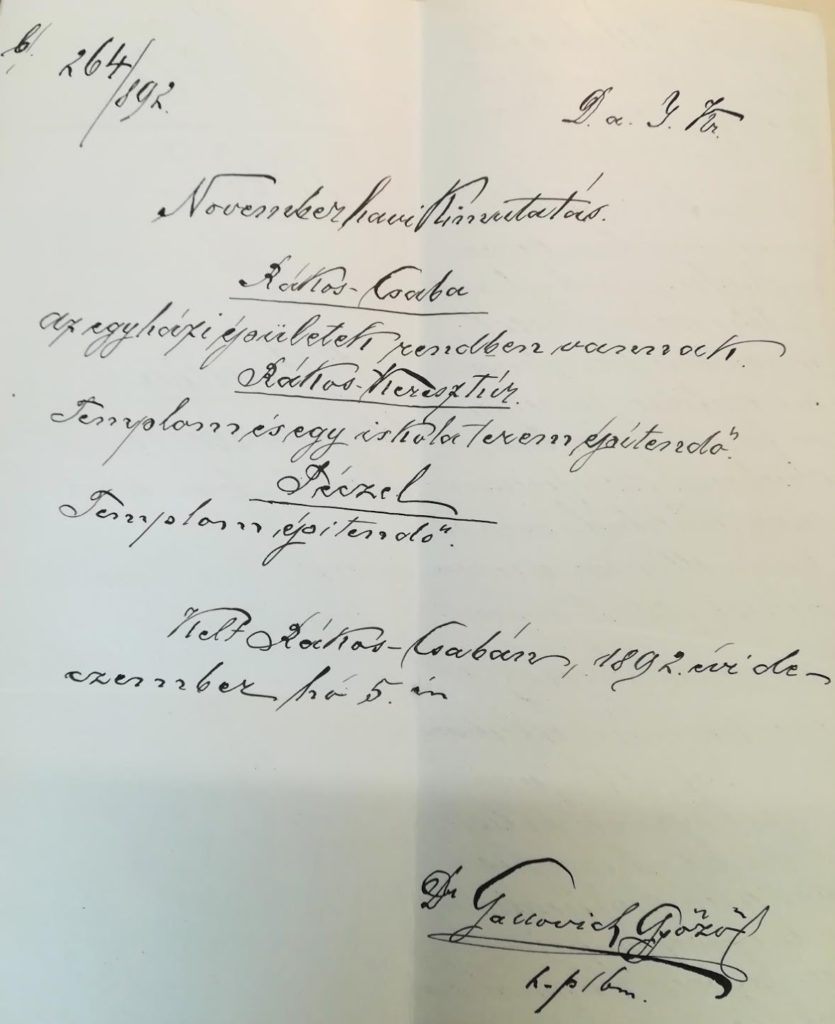 b/ 264/892.
D. a. J. Kr.
November havi Kimutatás.
Rákos-Csaba
az egyházi épületek rendben vannak.
Rákos-Keresztúr.
Templom és egy iskola terem építendő.
Péczel
Templom építendő.
Kelt Rákos-Csabán, 1892. évi de-
czember hó 5. én
Dr Győző
h. plbm.